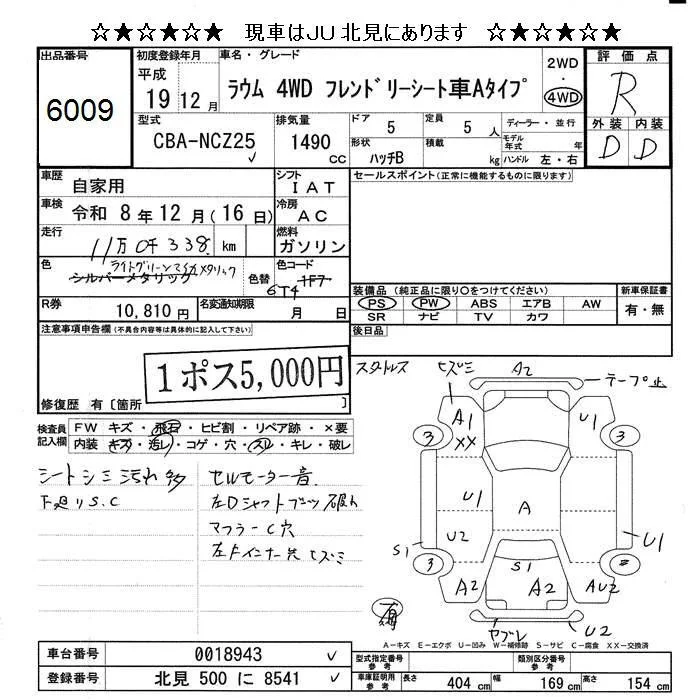 ☆★☆★☆★ 現車はJU北見にあります ☆★☆★☆★
出品番号
6009
初度登録年月
平成
19 12月
車名・グレード
ラウム 4WD フレンドリーシート車Aタイプ
2WD
・
4WD
評価点
R
外装 内装
D D
型式
CBA-NCZ25
排気量
1490
CC
ドア
5
定員
5 人
形状
ハッチB
積載
kg
ディーラー・並行
モデル年式 年
ハンドル 左・右
車歴
自家用
シフト
IAT
車検
令和 8年 12月(16日)
冷房
AC
走行
11万0千338 km
燃料
ガソリン
色
ライトグリーンマイカメタリック
シルバーメタリック
色替
色コード
1F7
6T4
R券
10,810 円
名変通知期限
月 日
セールスポイント(正常に機能するものに限ります)
装備品 (純正品に限り○をつけてください)
PS PW ABS エアB AW
SR ナビ TV カワ
新車保証書
有・無
後日品
注意事項申告欄(不具合内容等は具体的に記入して下さい)
1ポス5,000円
修復歴 有〔箇所 〕
検査員記入欄
FW キズ・飛石・ヒビ割・リペア跡・×要
内装 キズ・汚レ・コゲ・穴・スレ・キレ・破レ
シートシミ汚れ多
下廻りS.C
セルモーター音
左Dシャフトブーツ破れ
マフラーC穴
左Fインナー先ヒズミ
スタッドレス
ヒズミ
A2
テープ止
A1
XX
U1
3
3
U1
A
U2
S1
U1
3
S1
A2
A2
AU2
ヤブレ
U2
A−キズ E−エクボ U−凹み W−補修跡 S−サビ C−腐食 XX−交換済
車台番号
0018943
登録番号
北見 500 に 8541
型式指定番号
類別区分番号
車庫証明用参考
長さ 404 cm
幅 169 cm
高さ 154 cm